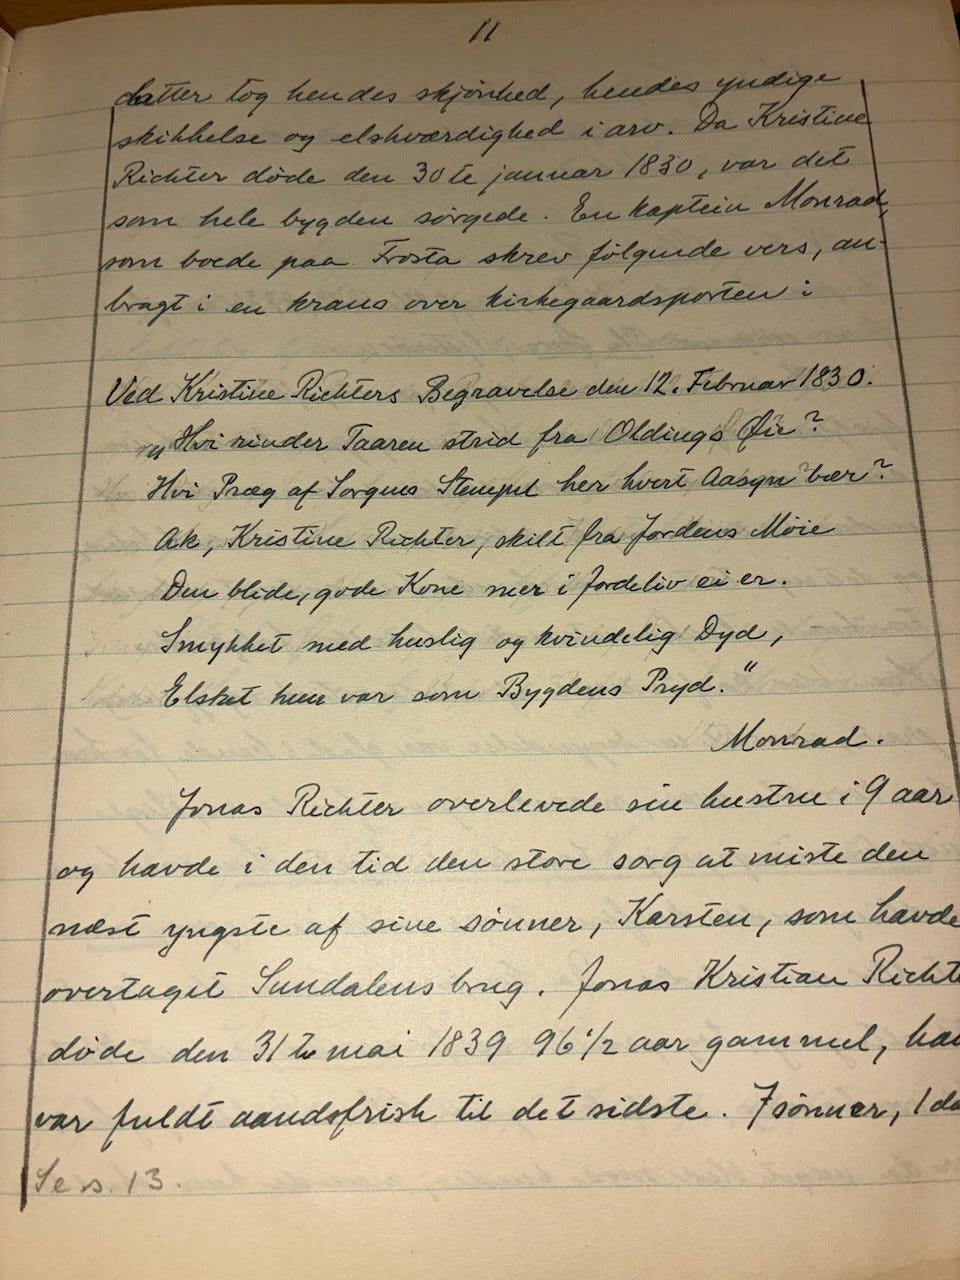 11
datter tog hendes skjønhed, hendes yndige
skikkelse og elskværdighed i arv. Da Kristine
Richter døde den 30te januar 1830, var det
som hele bygden sørgede. En kaptein Monrad,
som boede paa Frosta skrev følgende vers, an-
bragt i en krans over kirkegaardsporten:
Ved Kristine Richters Begravelse den 12. Februar 1830.
"Hvi rinder Taaren strid fra Oldings Øie?
Hvi Præg af Sorgens Stempel her hvert Aasyn bær?
Ak, Kristine Richter, skilt fra Jordens Møie
Den blide, gode Kone mer i Jordeliv ei er.
Smykket med huslig og kvindelig Dyd,
Elsket hun var som Bygdens Pryd."
Monrad.
Jonas Richter overlevede sin hustru i 9 aar
og havde i den tid den store sorg at miste den
næst yngste af sine sønner, Karsten, som havde
overtaget Sundalens brug. Jonas Kristian Richte
døde den 31te mai 1839 96 1/2 aar gammel, han
var fuldt aandsfrisk til det sidste. 7 sønner, 1 da
Se s. 13.